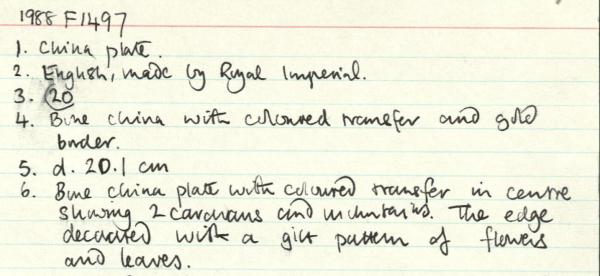 1988 F1497
1. China plate.
2. English, made by Royal Imperial.
3. 20
4. Bone china with coloured transfer and gold
border.
5. d. 20.1 cm
6. Bone china plate with coloured transfer in centre
showing 2 caravans and mountains. The edge
decorated with a gilt pattern of flowers
and leaves.